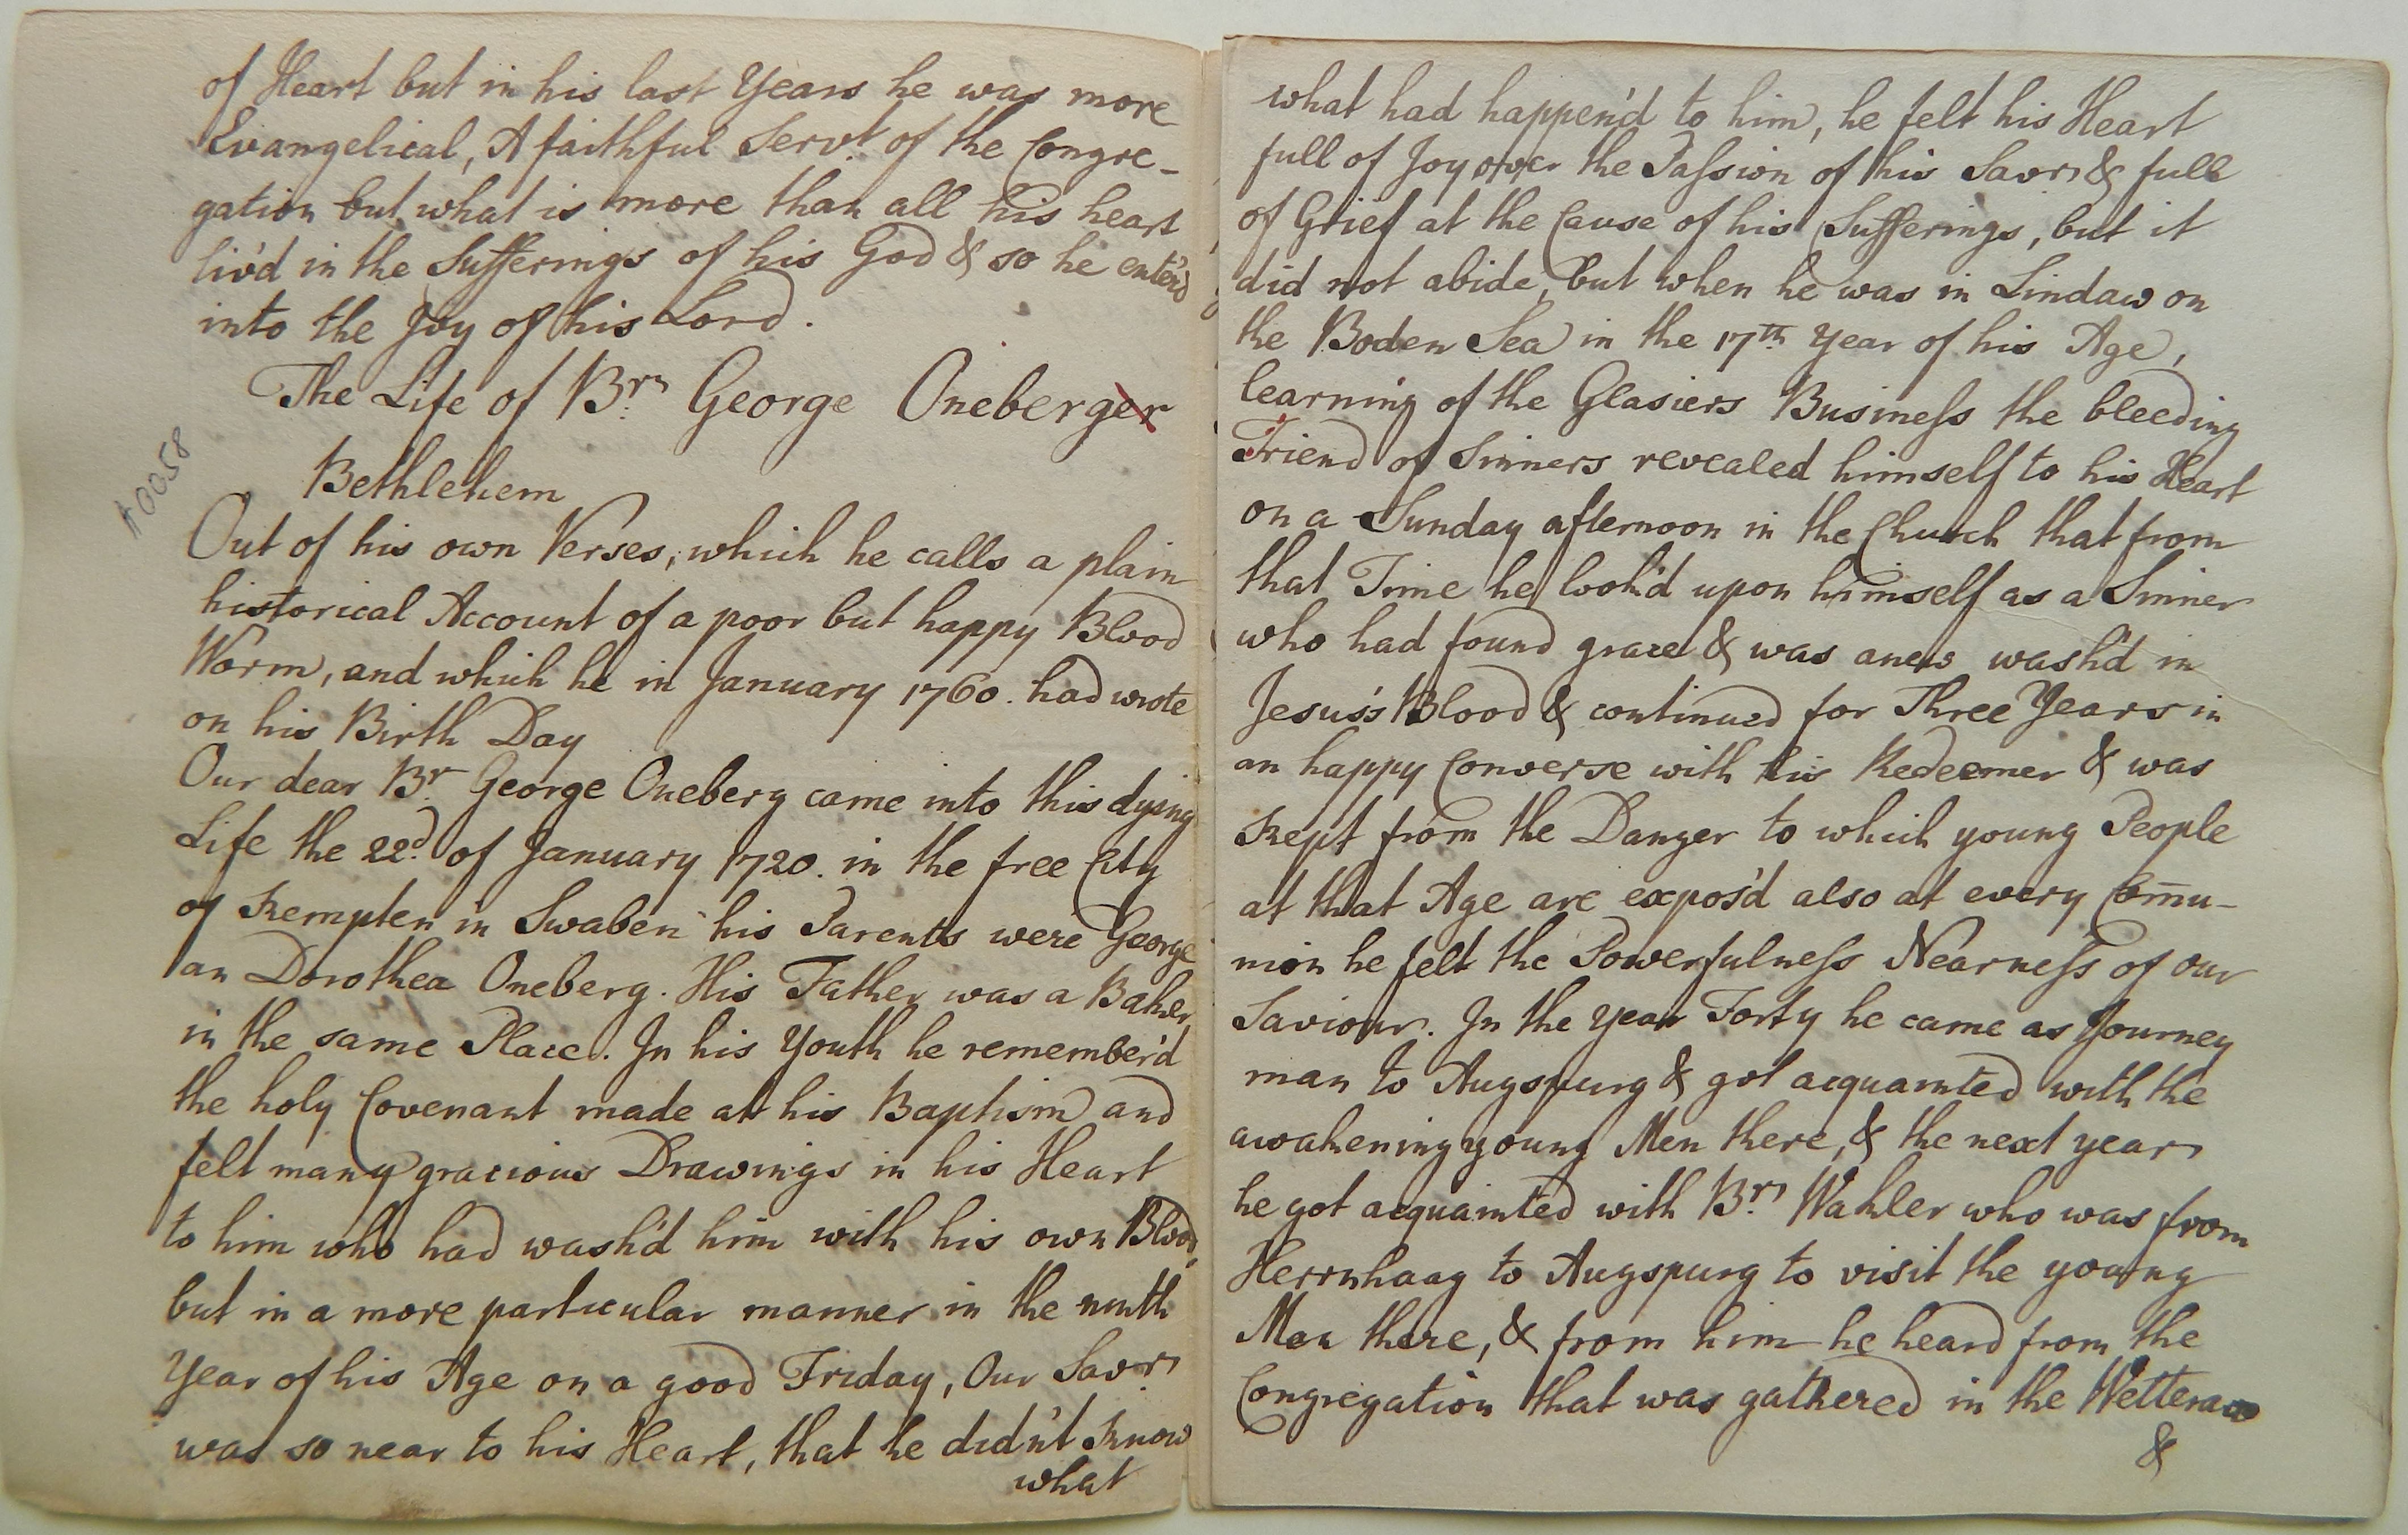 of Heart but in his last Years he was more
Evangelical, A faithful Servt. of the Congre-
gation but what is more than all his heart
liv'd in the Sufferings of his God & so he enter'd
into the Joy of his Lord.
The Life of Br. George Oneberger
Bethlehem
A0058
Out of his own Verses, which he calls a plain
historical Account of a poor but happy Blood
Worm, and which he in January 1760. had wrote
on his Birth Day
Our dear Br. George Oneberg came into this dying
Life the 22d. of January 1720. in the free City
of Kempten in Swaben his Parents were George
an Dorothea Oneberg. His Father was a Baker
in the same Place. In his Youth he remember'd
the holy Covenant made at his Baptism and
felt many gracious Drawings in his Heart
to him who had wash'd him with his own Blood,
but in a more particular manner in the ninth
Year of his Age on a good Friday, Our Savr
was so near to his Heart, that he didn't know
what
what had happen'd to him, he felt his Heart
full of Joy over the Passion of his Savr & full
of Grief at the Cause of his Sufferings, but it
did not abide, but when he was in Lindaw on
the Boden Sea in the 17th Year of his Age,
learning of the Glasiers Business the bleeding
Friend of Sinners revealed himself to his Heart
on a Sunday afternoon in the Church that from
that Time he look'd upon himself as a Sinner
who had found grace & was anew wash'd in
Jesus's Blood & continued for Three Years in
an happy Converse with his Redeemer & was
kept from the Danger to which young People
at that Age are expos'd also at every Com̄u-
nion he felt the Powerfulness Nearness of our
Saviour. In the Year Forty he came as Journey
man to Augspurg & got acquainted with the
awakening young Men there, & the next year
he got acquainted with Br. Wahler who was from
Herrnhaag to Augspurg to visit the young
Men there, & from him he heard from the
Congregation that was gathered in the Wetteraw
&